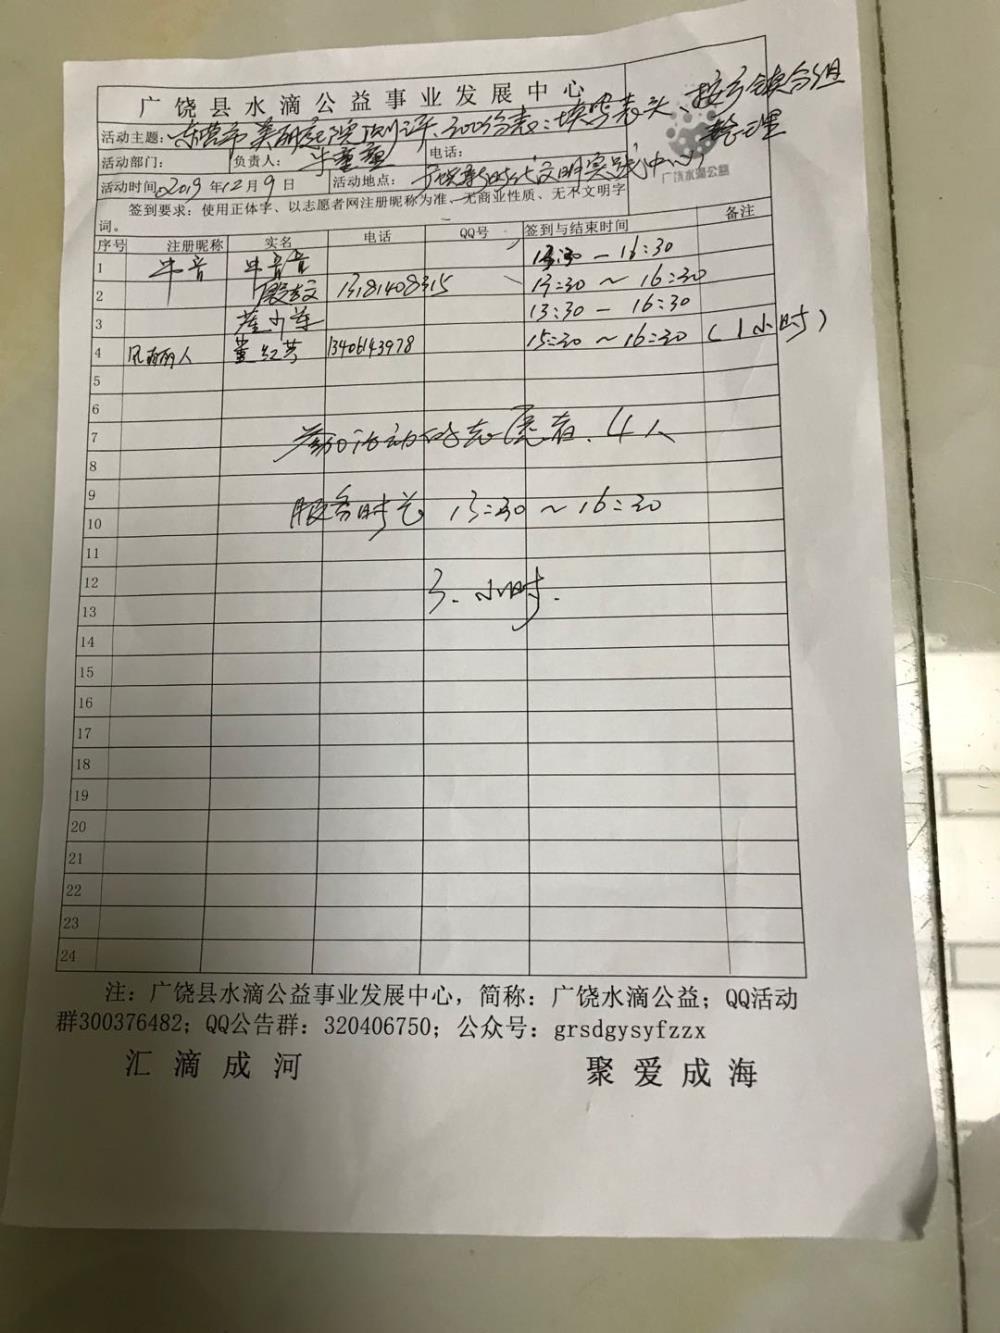 广饶县水滴公益事业发展中心
活动主题: 东营市美丽庭院测评、300份表: 填写表头、按乡镇分组
整理
活动部门: 负责人: 电话:
广饶水滴公益
活动时间 2019年12月9日 活动地点: 广饶新时代文明实践中心
签到要求: 使用正体字、以志愿者网注册昵称为准、无商业性质、无不文明字
词。
序号 注册昵称 实名 电话 QQ号 签到与结束时间 备注
1 牛音 牛音音 13:30 — 16:30
2 13181408315 13:30 ～ 16:30
3 13:30 — 16:30
4 风雨丽人 董红芳 13406143978 15:30 ～ 16:30 (1小时)
5
6
7 参加活动的志愿者、4人
8
9
10 服务时长 13:30 ～ 16:30
11
12
13 3、小时.
14
15
16
17
18
19
20
21
22
23
24
注: 广饶县水滴公益事业发展中心, 简称: 广饶水滴公益; QQ活动
群300376482; QQ公告群: 320406750; 公众号: grsdgysyfzzx
汇滴成河 聚爱成海